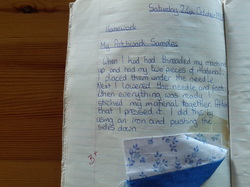 Saturday 22nd October
Homework
My Patchwork Samples
When I had had threaded my machine
up and had my two pieces of material
I placed them under the needle.
Next I lowered the needle and foot
then everything was ready. I
stiched my material together. After
that I pressed it. I did this by
using an iron and pushing the
sides down.
B+